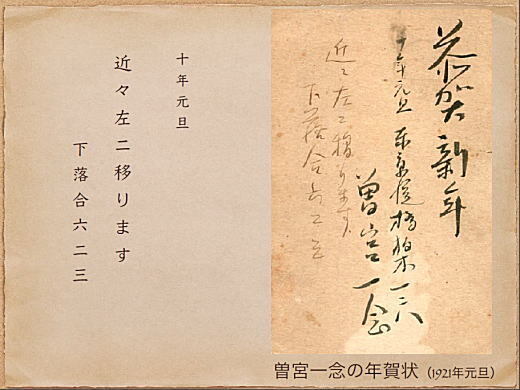 恭賀新年
十年元旦 東京淀橋柏木一二八
曽宮一念
近々左ニ移ります
下落合六二三
十年元旦
近々左ニ移ります
下落合六二三
曽宮一念の年賀状（1921年元旦）